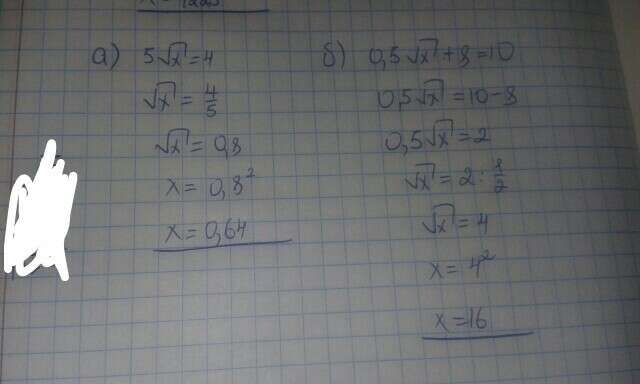 а) 5√x = 4
√x = 4/5
√x = 0,8
x = 0,8²
x = 0,64
б) 0,5√x + 8 = 10
0,5√x = 10 - 8
0,5√x = 2
√x = 2 : 1/2
√x = 4
x = 4²
x = 16